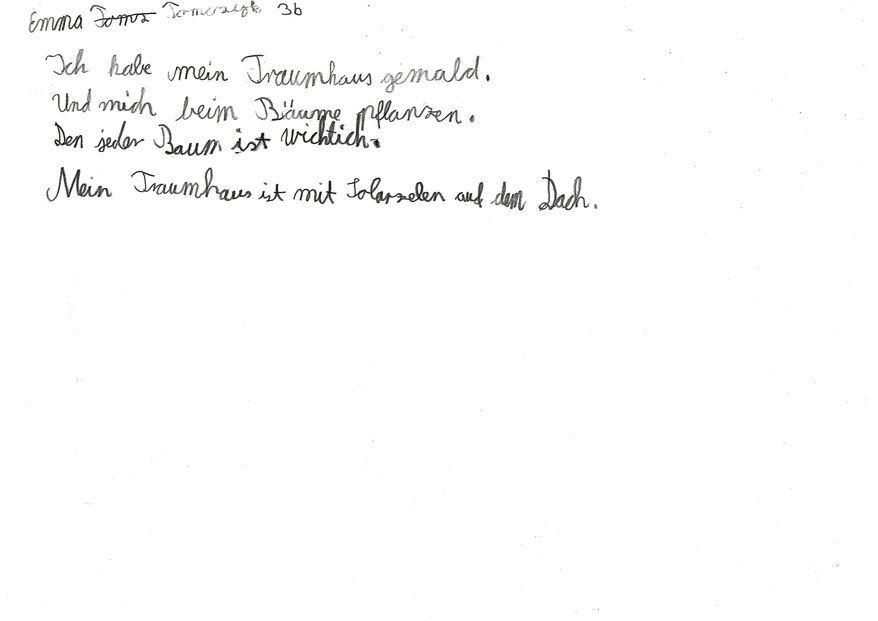 Emma Tomczyk 3b
Ich habe mein Traumhaus gemald.
Und mich beim Bäume pflanzen.
Den jeder Baum ist wichtich.
Mein Traumhaus ist mit Solarzelen auf dem Dach.